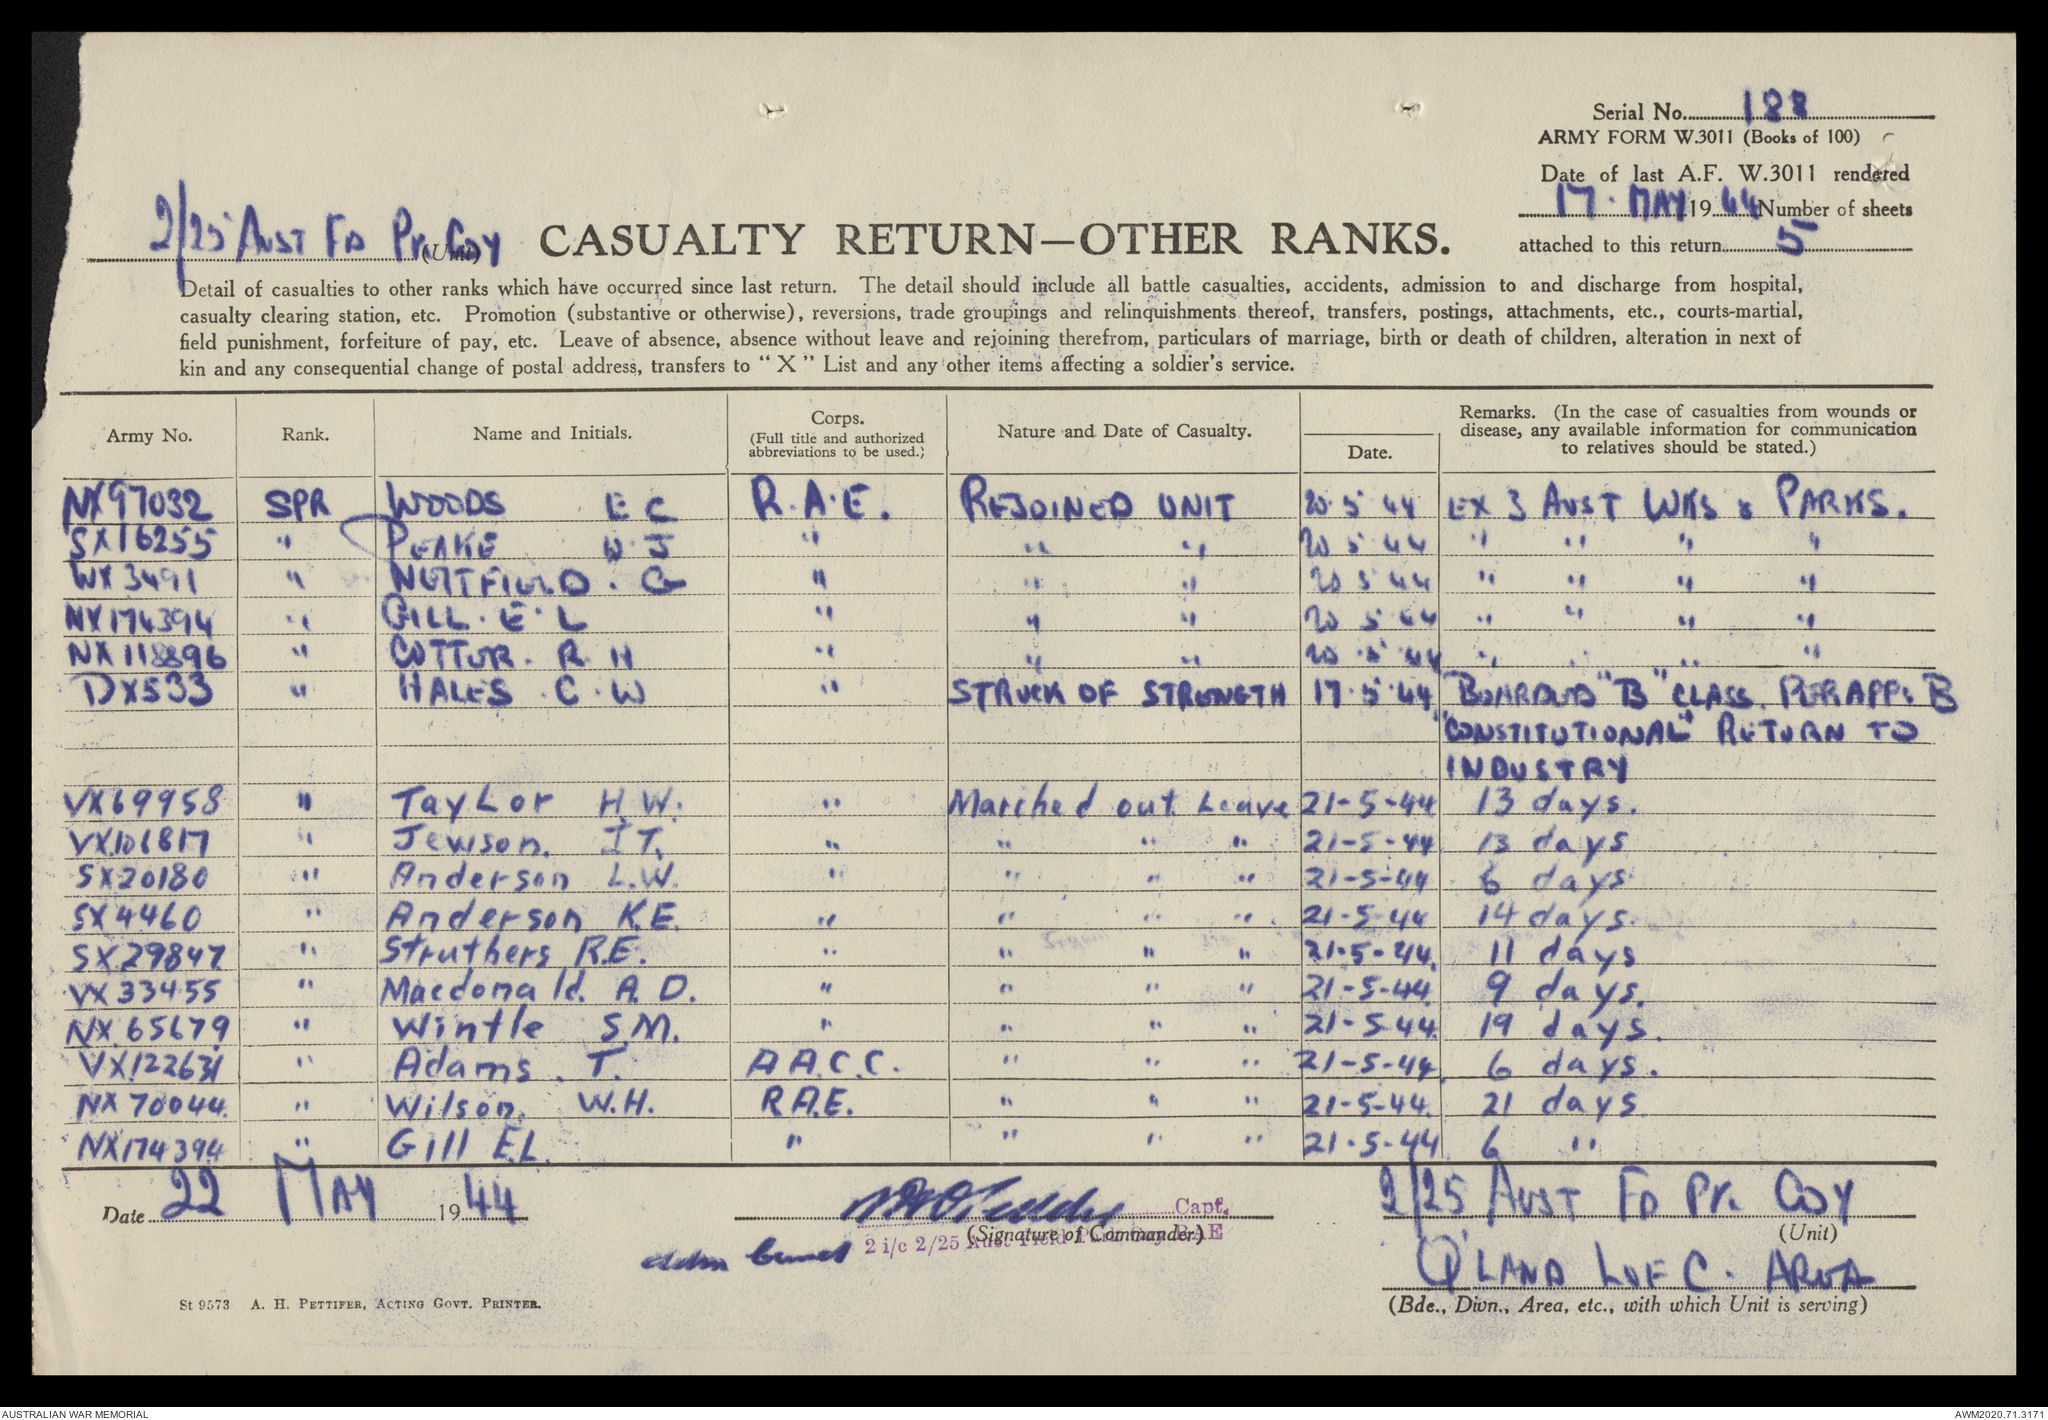 Serial No. 188
ARMY FORM W.3011 (Books of 100)
Date of last A.F. W.3011 rendered
17. MAY 1944 Number of sheets
attached to this return 5
2/25 AUST FD PK. COY (Unit)
CASUALTY RETURN—OTHER RANKS.
Detail of casualties to other ranks which have occurred since last return. The detail should include all battle casualties, accidents, admission to and discharge from hospital,
casualty clearing station, etc. Promotion (substantive or otherwise), reversions, trade groupings and relinquishments thereof, transfers, postings, attachments, etc., courts-martial,
field punishment, forfeiture of pay, etc. Leave of absence, absence without leave and rejoining therefrom, particulars of marriage, birth or death of children, alteration in next of
kin and any consequential change of postal address, transfers to "X" List and any other items affecting a soldier's service.
Army No. Rank. Name and Initials. Corps. (Full title and authorized abbreviations to be used.) Nature and Date of Casualty. Date. Remarks. (In the case of casualties from wounds or disease, any available information for communication to relatives should be stated.)
NX97032 SPR WOODS E C R.A.E. REJOINED UNIT 20.5.44 EX 3 AUST WKS & PARKS.
SX16255 " PEAKE W J " " " 20 5 44 " " " "
WX3491 " NETTFIELD. G " " " 20 5 44 " " " "
NX174394 " GILL. E. L " " " 20 5 44 " " " "
NX118896 " COTTER. R. H " " " 20.5.44 " " " "
DX533 " HALES. C. W " STRUCK OF STRENGTH 17.5.44 BOARDED "B" CLASS. PER APP. B
"CONSTITUTIONAL" RETURN TO
INDUSTRY
VX69958 " Taylor H.W. " Marched out Leave 21-5-44 13 days.
VX101817 " Jewson. I T. " " " " 21-5-44 13 days
SX20180 " Anderson L.W. " " " " 21-5-44 6 days
SX4460 " Anderson K.E. " " " " 21-5-44 14 days.
SX29847 " Struthers R.E. " " " " 21-5-44. 11 days
VX33455 " Macdonald. A. D. " " " " 21-5-44. 9 days.
NX.65679 " Wintle S.M. " " " " 21-5-44. 19 days.
VX122631 " Adams. T. A.A.C.C. " " " 21-5-44. 6 days.
NX70044. " Wilson. W.H. R.A.E. " " " 21-5-44. 21 days.
NX174394 " Gill E.L. " " " " 21-5-44 6 "
Date 22 MAY 1944
Capt.
(Signature of Commander)
2 i/c 2/25 Aust Field Park Coy RAE
2/25 AUST FD PK. COY
(Unit)
Q'LAND L OF C. AREA
(Bde., Divn., Area, etc., with which Unit is serving)
St 9573 A. H. PETTIFER, ACTING GOVT. PRINTER.
AUSTRALIAN WAR MEMORIAL
AWM2020.71.3171